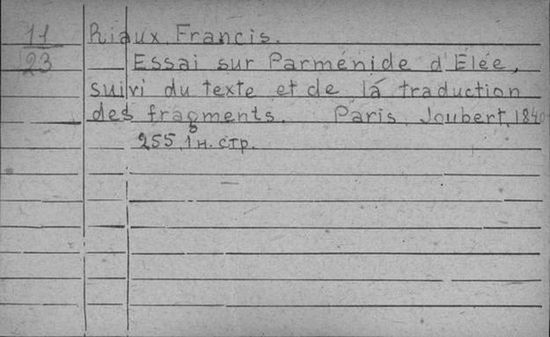 11
23
Riaux, Francis.
Essai sur Parménide d'Elée,
suivi du texte et de la traduction
des fragments. Paris, Joubert, 1840
255, 1 н. стр.